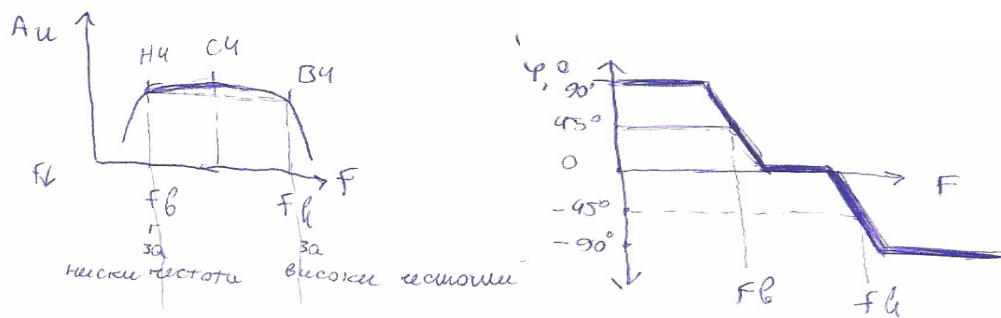 Au
НЧ СЧ ВЧ
F
fв fh
за за
ниски честоти високи честоти
φ, °
90°
45°
0
F
-45°
-90°
Fв fh